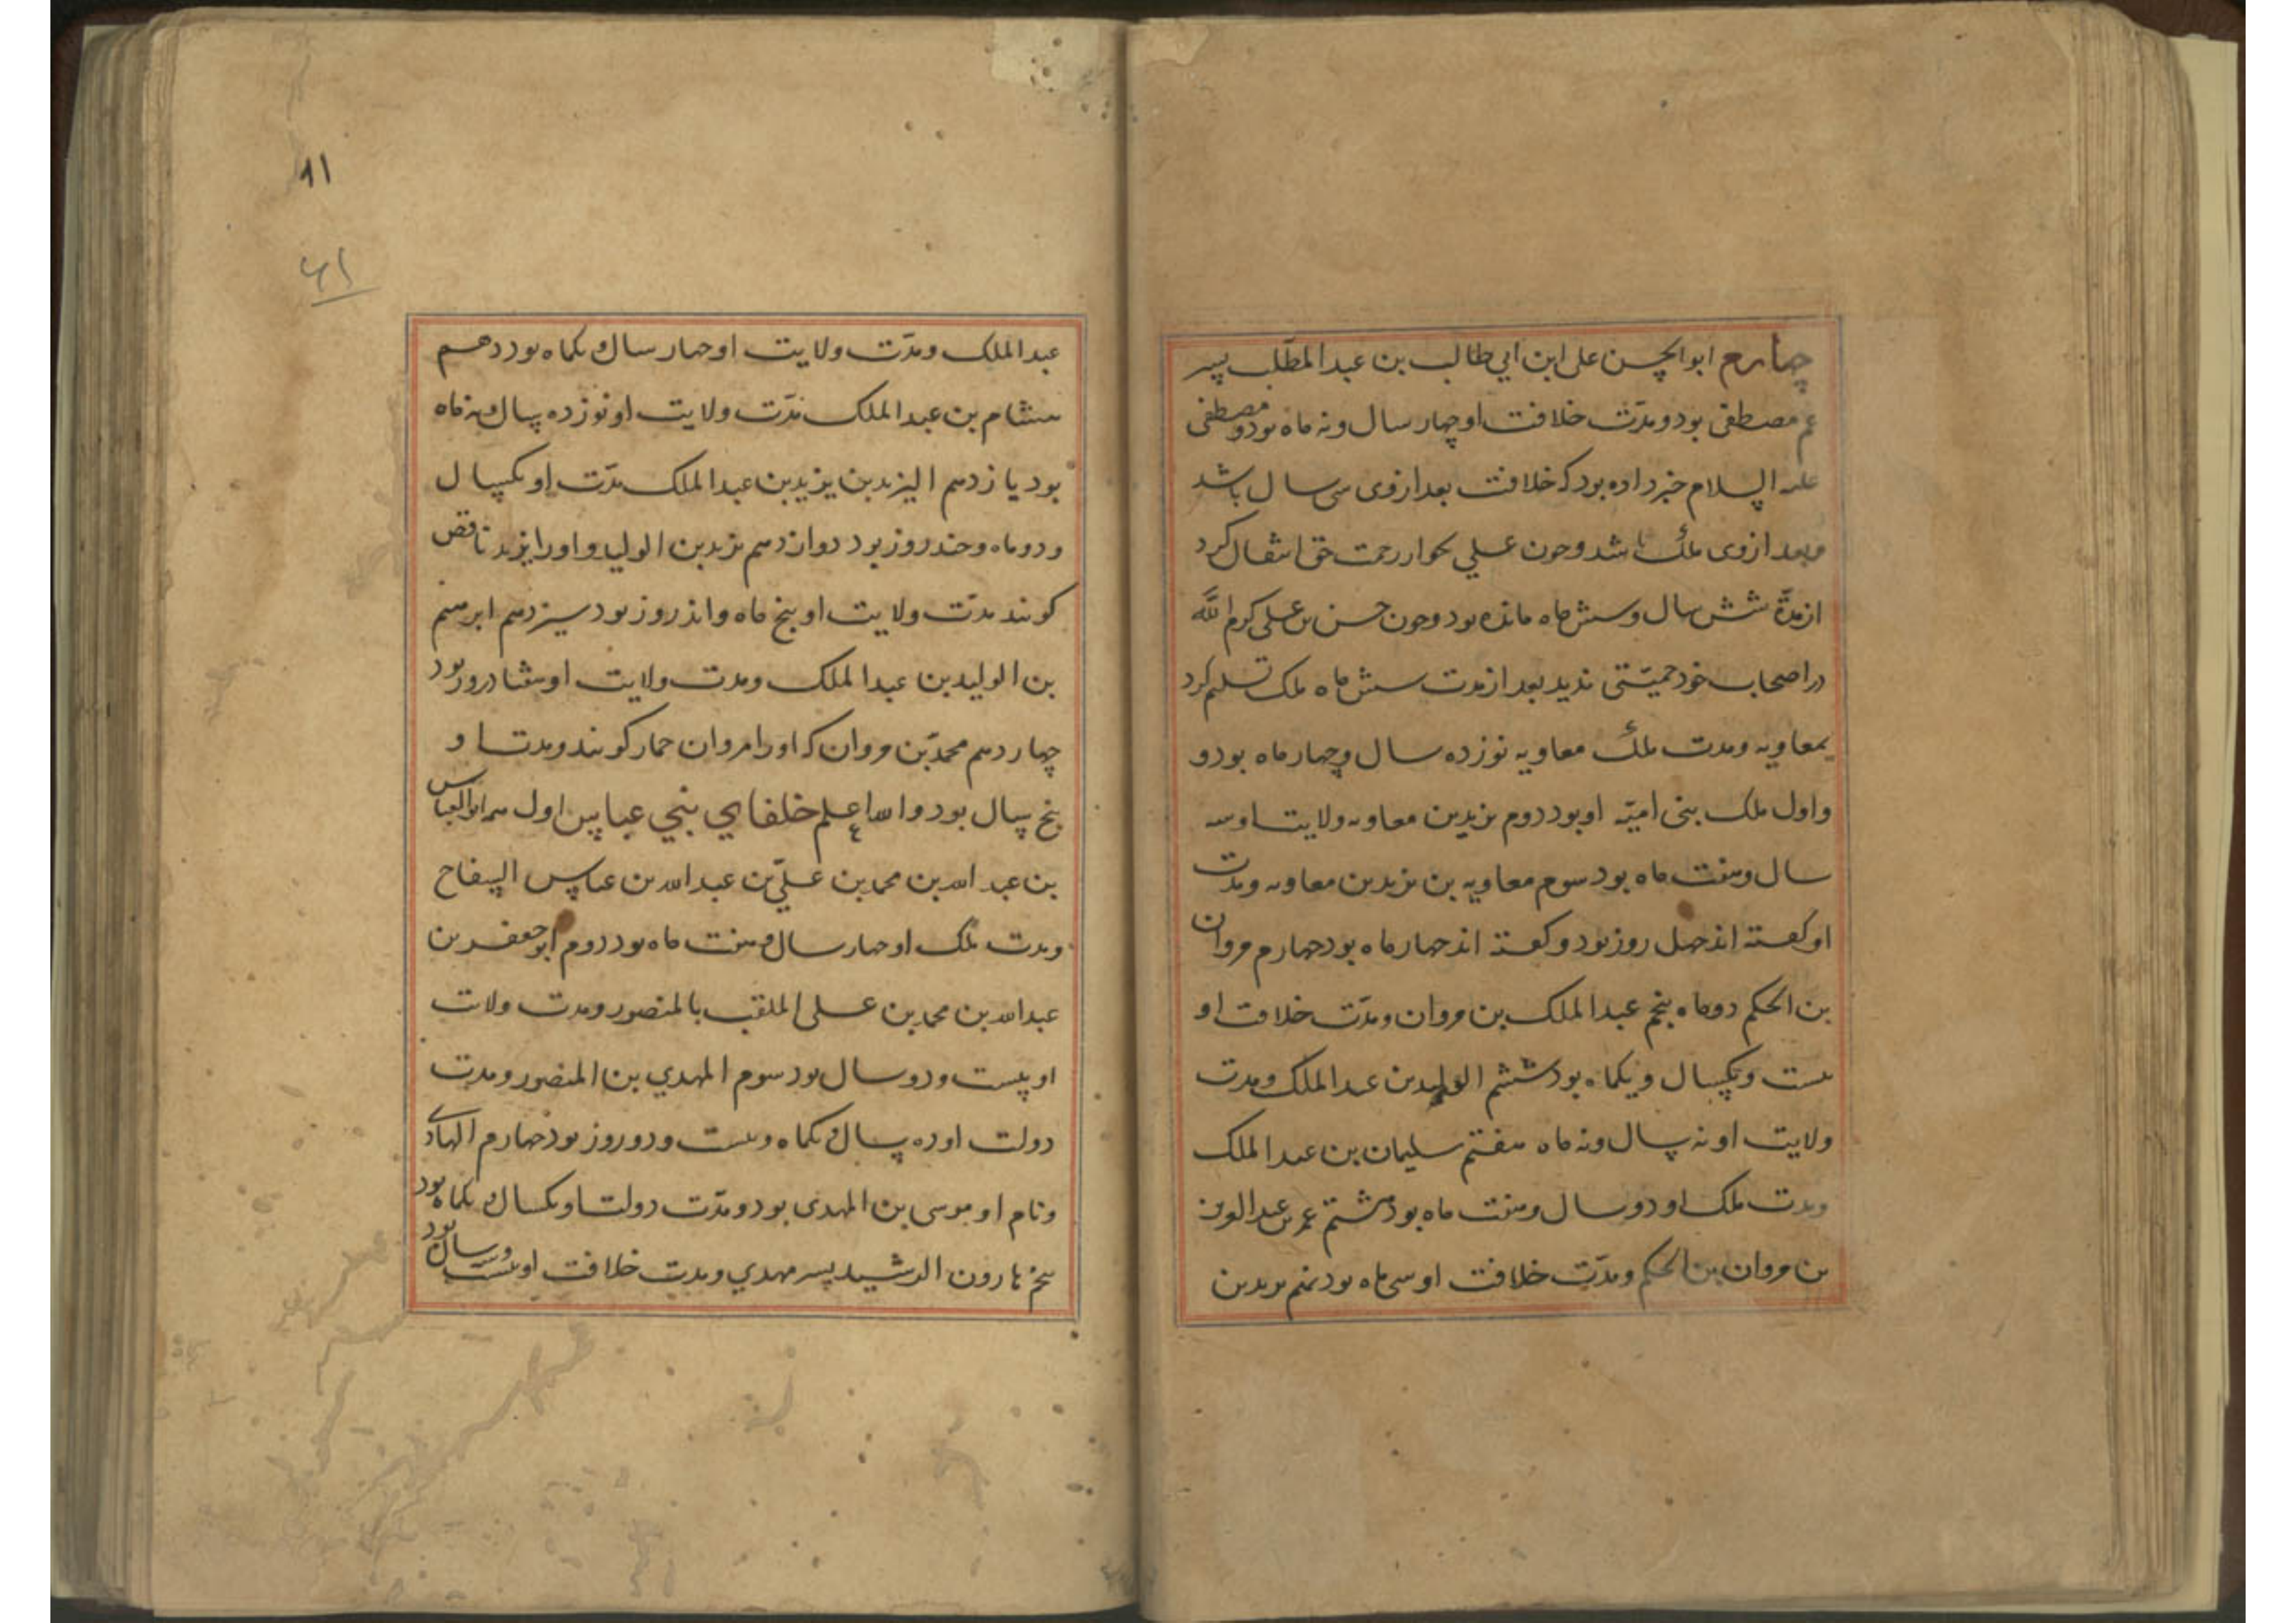 چهارم ابوالحسن علی ابن ابی طالب بن عبدالمطّلب پسر
عم مصطفی بود و مدّت خلافت او چهار سال و نه ماه بود و مصطفی
علیه السلام خبر داده بود که خلافت بعد از وی سی سال باشد
و بعد از وی ملک باشد و چون علی بجوار رحمت حق انتقال کرد
از مدّة شش سال و شش ماه مانده بود و چون حسن بن علی کرم الله
در اصحاب خود حمیّتی ندید بعد از مدت شش ماه ملک تسلیم کرد
بمعاویه و مدت ملک معاویه نوزده سال و چهار ماه بود و
و اول ملک بنی امیّه او بود دوم یزید بن معاویه ولایت او سه
سال و هفت ماه بود سوم معاویه بن یزید بن معاویه و مدت
او گفته اند چهل روز بود و گفته اند چهار ماه بود چهارم مروان
بن الحکم دو ماه پنجم عبدالملک بن مروان و مدّت خلافت او
بیست و یکسال و یکماه بود ششم الولید بن عبدالملک و مدت
ولایت او نه سال و نه ماه هفتم سلیمان بن عبدالملک
و مدت ملک او دو سال و هفت ماه بود هشتم عمر بن عبدالعزیز
بن مروان بن الحکم و مدّت خلافت او سی ماه بود نهم یزید بن
۸۱
عبدالملک و مدّت ولایت او چهار سال و یکماه بود دهم
هشام بن عبدالملک مدّت ولایت او نوزده سال نه ماه
بود یازدهم الیزید بن یزید بن عبدالملک مدّت او یکسال
و دو ماه و چند روز بود دوازدهم یزید بن الولید و او را یزید ناقص
گویند مدّت ولایت او پنج ماه و اند روز بود سیزدهم ابرهیم
بن الولید بن عبدالملک و مدت ولایت او هفتاد روز بود
چهاردهم محمدّ بن مروان که او را مروان حمار گویند و مدت او
پنج سال بود والله اعلم خلفای بنی عباس اول ابوالعباس
بن عبدالله بن محمد بن علیّ بن عبدالله بن عباس السفاح
و مدت ملک او چهار سال و هفت ماه بود دوم ابوجعفر بن
عبدالله بن محمد بن علی الملقب بالمنصور و مدت ولات
او بیست و دو سال بود سوم المهدی بن المنصور و مدت
دولت او ده سال و یکماه و بیست و دو روز بود چهارم الهادی
و نام او موسی بن المهدی بود و مدّت دولت او یکسال و یکماه بود
پنجم هارون الرشید پسر مهدی و مدت خلافت او بیست و سه سال بود